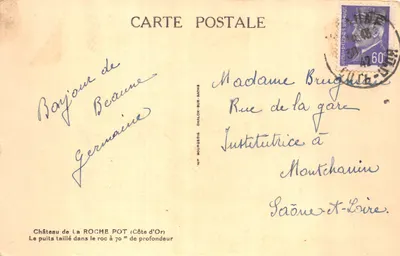 CARTE POSTALE
Bonjour de
Beaune
Germaine
Château de LA ROCHE POT (Côte d'Or)
Le puits taillé dans le roc à 70 m de profondeur
IMP. BOURGEOIS CHALON-SUR-SAÔNE
60
Madame
Rue de la gare
Institutrice à
Montchanin
Saône-et-Loire.